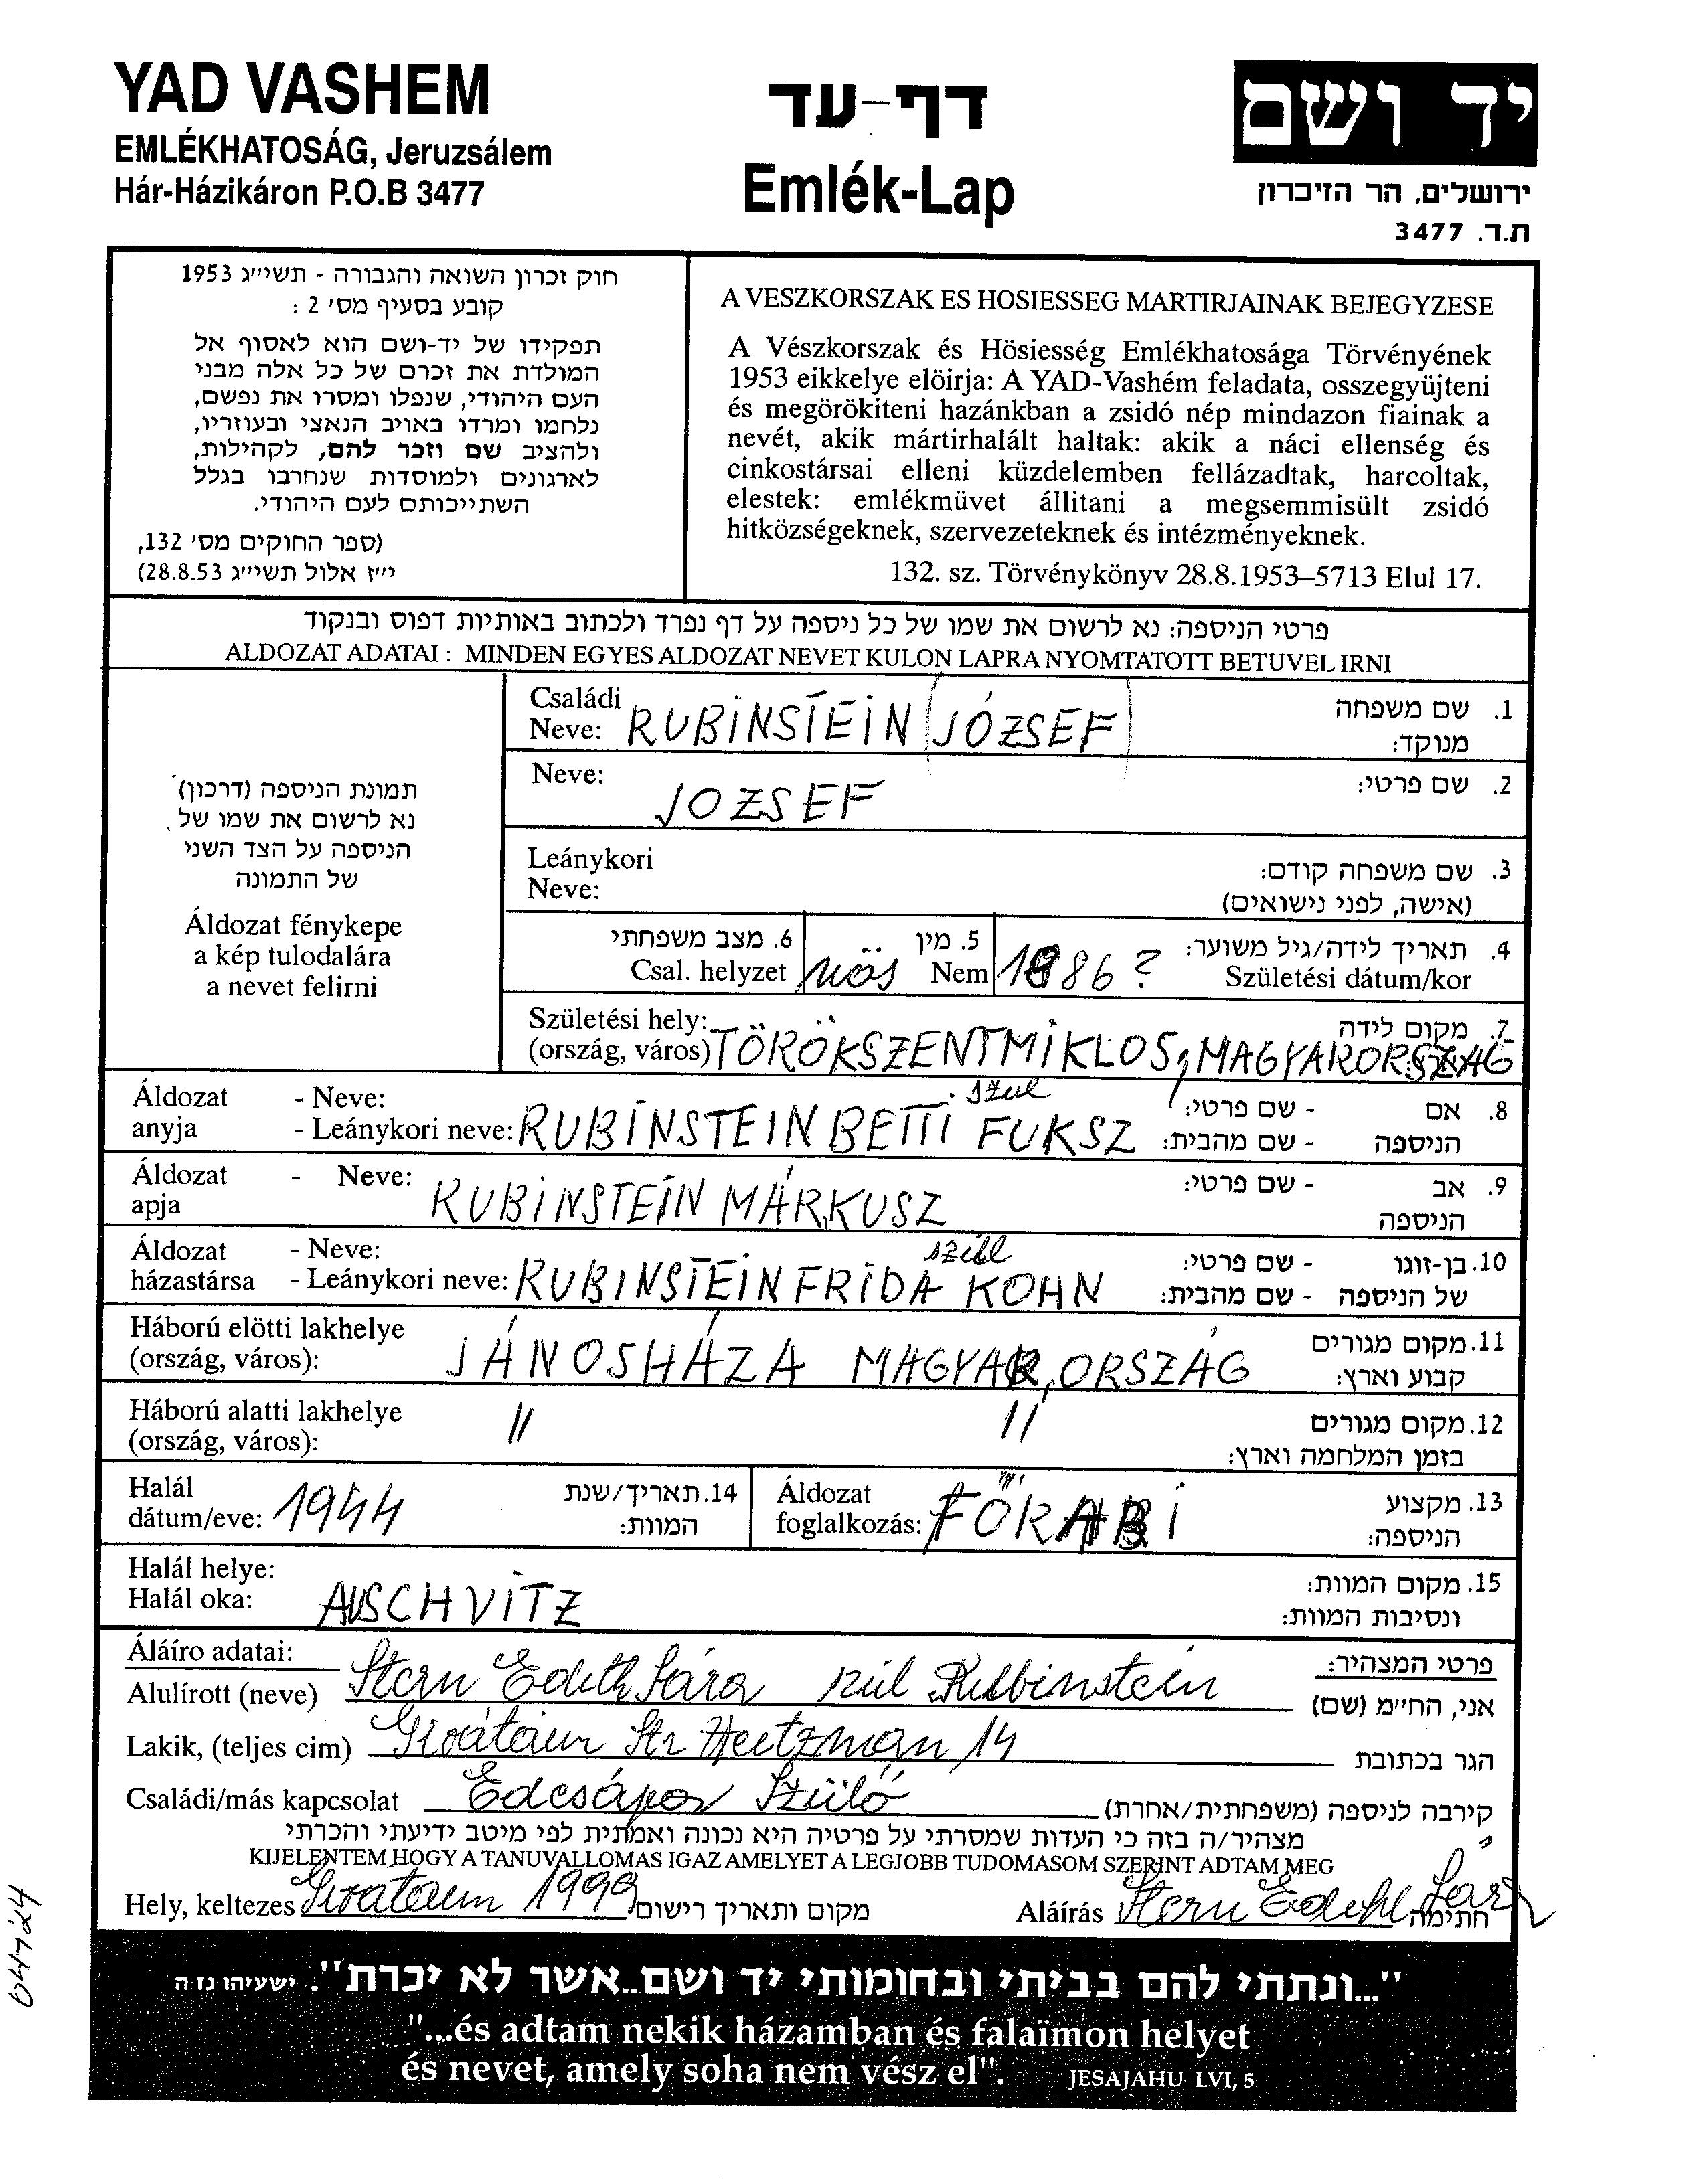 YAD VASHEM
EMLÉKHATOSÁG, Jeruzsálem
Hár-Házikáron P.O.B 3477
דף-עד
Emlék-Lap
יד ושם
ירושלים, הר הזיכרון
ת.ד. 3477
חוק זכרון השואה והגבורה - תשי״ג 1953
קובע בסעיף מס׳ 2 :
תפקידו של יד-ושם הוא לאסוף אל
המולדת את זכרם של כל אלה מבני
העם היהודי, שנפלו ומסרו את נפשם,
נלחמו ומרדו באויב הנאצי ובעוזריו,
ולהציב שם וזכר להם, לקהילות,
לארגונים ולמוסדות שנחרבו בגלל
השתייכותם לעם היהודי.
(ספר החוקים מס׳ 132,
י״ז אלול תשי״ג 28.8.53)
A VESZKORSZAK ES HOSIESSEG MARTIRJAINAK BEJEGYZESE
A Vészkorszak és Hösiesség Emlékhatosága Törvényének
1953 eikkelye elöirja: A YAD-Vashém feladata, osszegyüjteni
és megörökiteni hazánkban a zsidó nép mindazon fiainak a
nevét, akik mártirhalált haltak: akik a náci ellenség és
cinkostársai elleni küzdelemben fellázadtak, harcoltak,
elestek: emlékmüvet állitani a megsemmisült zsidó
hitközségeknek, szervezeteknek és intézményeknek.
132. sz. Törvénykönyv 28.8.1953–5713 Elul 17.
פרטי הניספה: נא לרשום את שמו של כל ניספה על דף נפרד ולכתוב באותיות דפוס ובנקוד
ALDOZAT ADATAI : MINDEN EGYES ALDOZAT NEVET KULON LAPRA NYOMTATOTT BETUVEL IRNI
תמונת הניספה (דרכון)
נא לרשום את שמו של
הניספה על הצד השני
של התמונה
Áldozat fénykepe
a kép tulodalára
a nevet felirni
Családi
Neve: RUBINSTEIN (JÓZSEF)
1. שם משפחה
מנוקד:
Neve: JOZSEF
2. שם פרטי:
Leánykori
Neve:
3. שם משפחה קודם:
(אישה, לפני נישואים)
6. מצב משפחתי
Csal. helyzet nös
5. מין
Nem
1886?
4. תאריך לידה/גיל משוער:
Születési dátum/kor
Születési hely:
(ország, város) TÖRÖKSZENTMIKLOS, MAGYARORSZAG
7. מקום לידה
Áldozat - Neve:
anyja - Leánykori neve: RUBINSTEIN BETTI szul FUKSZ
8. אם - שם פרטי:
הניספה - שם מהבית:
Áldozat - Neve:
apja RUBINSTEIN MÁRKUSZ
9. אב - שם פרטי:
הניספה
Áldozat - Neve:
házastársa - Leánykori neve: RUBINSTEIN FRIDA szül KOHN
10. בן-זוגו - שם פרטי:
של הניספה - שם מהבית:
Háború elötti lakhelye
(ország, város): JÁNOSHÁZA MAGYARORSZÁG
11. מקום מגורים
קבוע וארץ:
Háború alatti lakhelye
(ország, város): 〃 〃
12. מקום מגורים
בזמן המלחמה וארץ:
Halál
dátum/eve: 1944
14. תאריך/שנת
המוות:
Áldozat
foglalkozás: FŐRABBI
13. מקצוע
הניספה:
Halál helye:
Halál oka: AUSCHVITZ
15. מקום המוות:
ונסיבות המוות:
Áláíro adatai:
פרטי המצהיר:
Alulírott (neve) Stern Edith Sára szül Rubinstein אני, הח״מ (שם)
Lakik, (teljes cim) Givátaim Str 14 הגר בכתובת
Családi/más kapcsolat Edesápa Szülő קירבה לניספה (משפחתית/אחרת)
מצהיר/ה בזה כי העדות שמסרתי על פרטיה היא נכונה ואמתית לפי מיטב ידיעתי והכרתי
KIJELENTEM HOGY A TANUVALLOMAS IGAZ AMELYET A LEGJOBB TUDOMASOM SZERINT ADTAM MEG
Hely, keltezes Givataim 1999 מקום ותאריך רישום Aláírás Stern Edith Sára חתימה
"...ונתתי להם בביתי ובחומותי יד ושם..אשר לא יכרת". ישעיהו נו ה
"...és adtam nekik házamban és falaïmon helyet
és nevet, amely soha nem vész el". JESAJAHU LVI, 5